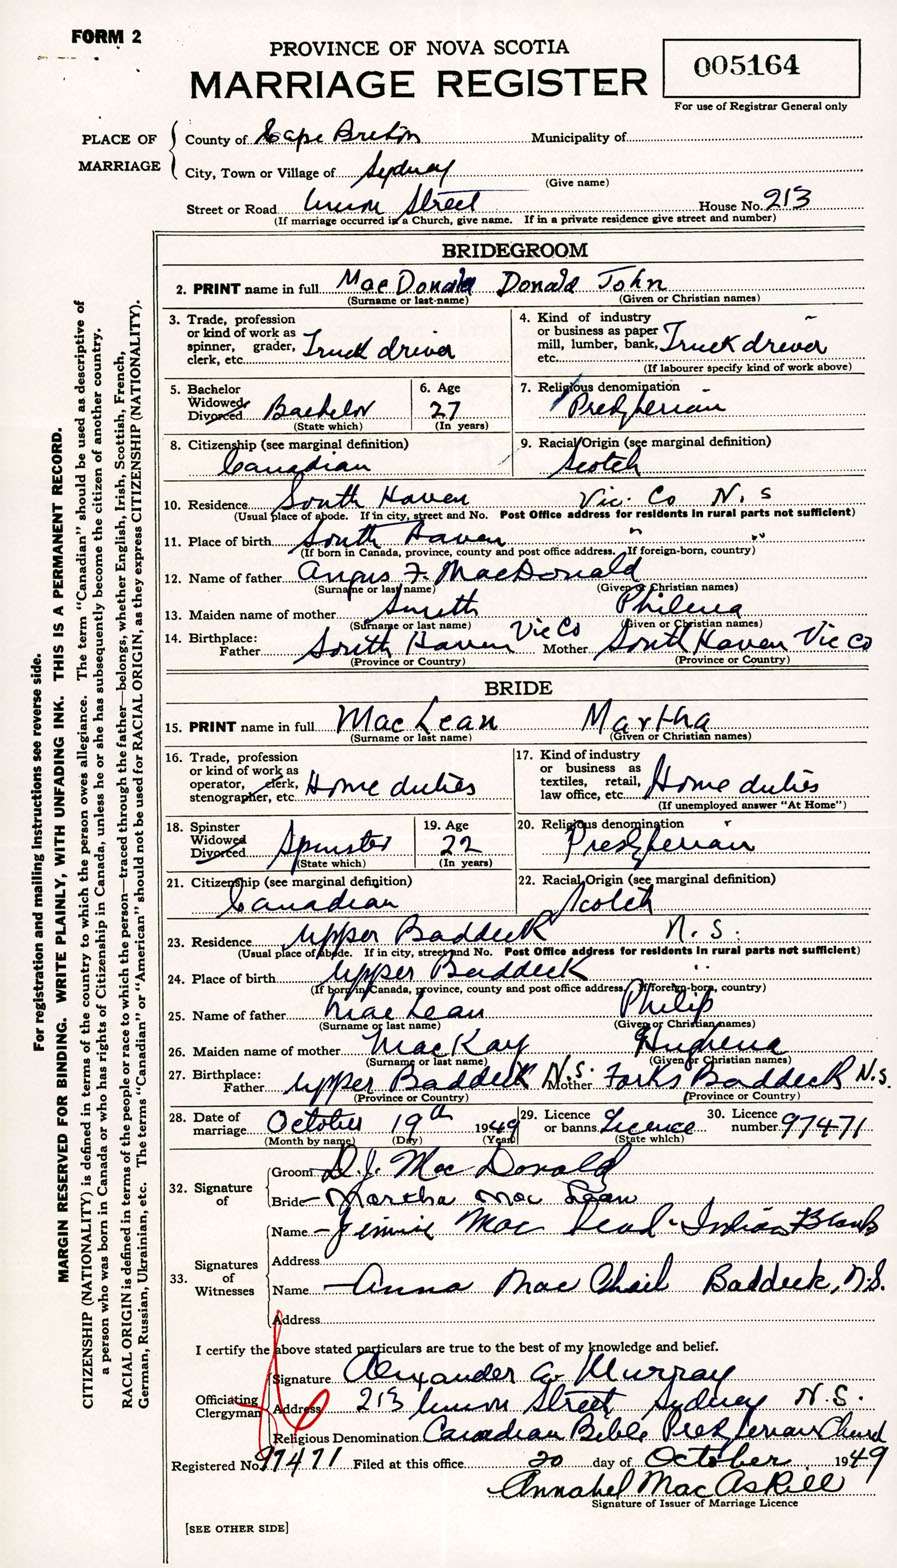 FORM 2
PROVINCE OF NOVA SCOTIA
MARRIAGE REGISTER
005164
For use of Registrar General only
PLACE OF MARRIAGE
County of Cape Breton Municipality of
City, Town or Village of Sydney
(Give name)
Street or Road Union Street House No. 213
(If marriage occurred in a Church, give name. If in a private residence give street and number)
BRIDEGROOM
2. PRINT name in full MacDonald Donald John
(Surname or last-name) (Given or Christian names)
3. Trade, profession or kind of work as spinner, grader, clerk, etc. Truck driver
4. Kind of industry or business as paper mill, lumber, bank, etc. Truck driver
(If labourer specify kind of work above)
5. Bachelor Widowed Divorced Bachelor
(State which)
6. Age 27
(In years)
7. Religious denomination Presbyterian
8. Citizenship (see marginal definition) Canadian
9. Racial Origin (see marginal definition) Scotch
10. Residence South Haven Vic. Co N. S
(Usual place of abode. If in city, street and No. Post Office address for residents in rural parts not sufficient)
11. Place of birth South Haven " "
(If born in Canada, province, county and post office address. If foreign-born, country)
12. Name of father Angus F. MacDonald
(Surname or last name) (Given or Christian names)
13. Maiden name of mother Smith Philena
(Surname or last name) (Given or Christian names)
14. Birthplace: Father South Haven Vic Co Mother South Haven Vic Co
(Province or Country) (Province or Country)
BRIDE
15. PRINT name in full MacLean Martha
(Surname or last name) (Given or Christian names)
16. Trade, profession or kind of work as operator, clerk, stenographer, etc. Home duties
17. Kind of industry or business as textiles, retail, law office, etc. Home duties
(If unemployed answer "At Home")
18. Spinster Widowed Divorced Spinster
(State which)
19. Age 22
(In years)
20. Religious denomination Presbyterian
21. Citizenship (see marginal definition) Canadian
22. Racial Origin (see marginal definition) Scotch
23. Residence Upper Baddeck N. S.
(Usual place of abode. If in city, street and No. Post Office address for residents in rural parts not sufficient)
24. Place of birth Upper Baddeck "
(If born in Canada, province, county and post office address. If foreign-born, country)
25. Name of father MacLean Philip
(Surname or last name) (Given or Christian names)
26. Maiden name of mother MacKay Hughena
(Surname or last name) (Given or Christian names)
27. Birthplace: Father Upper Baddeck N.S. Mother Forks Baddeck N.S.
(Province or Country) (Province or Country)
28. Date of marriage October 19th 1949
(Month by name) (Day) (Year)
29. Licence or banns Licence
(State which)
30. Licence number 97471
32. Signature of
Groom D.J. MacDonald
Bride Martha MacLean
33. Signatures of Witnesses
Name Jennie Mac Indian
Address
Name Anna Mac Baddeck, N.S.
Address
I certify the above stated particulars are true to the best of my knowledge and belief.
Officiating Clergyman
Signature Alexander G. Murray
Address 213 Union Street Sydney N.S.
Religious Denomination Canadian Bible Presbyterian Church
Registered No. 97471 Filed at this office 20 day of October 1949
Annabel MacAskill
Signature of Issuer of Marriage Licence
[SEE OTHER SIDE]
For registration and mailing instructions see reverse side.
MARGIN RESERVED FOR BINDING. WRITE PLAINLY, WITH UNFADING INK. THIS IS A PERMANENT RECORD.
CITIZENSHIP (NATIONALITY) is defined in terms of the country to which the person owes allegiance. The term "Canadian" should be used as descriptive of
a person who was born in Canada or who has rights of Citizenship in Canada, unless he or she has subsequently become the citizen of another country.
RACIAL ORIGIN is defined in terms of the people or race to which the person—traced through the father—belongs, whether English, Irish, Scottish, French,
German, Russian, Ukrainian, etc. The terms "Canadian" or "American" should not be used for RACIAL ORIGIN, as they express CITIZENSHIP (NATIONALITY).